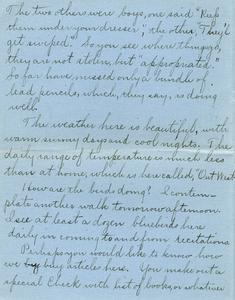 The two others were boys, one said "Keep
them under your dresser", the other, "They'll
get swiped." So you see where things go,
they are not stolen, but "appropriated."
So far I have missed only a bundle of
lead pencils, which, they say, is doing
well.
The weather here is beautiful, with
warm sunny days and cool nights. The
daily range of temperature is much less
than at home, which is here called, "Out West".
How are the birds doing? I contem-
plate another walk tomorrow afternoon.
I see at least a dozen bluebirds here
daily in coming to and from recitations.
Perhaps you would like to know how
we buy articles here. You make out a
special check with list of books or whatever